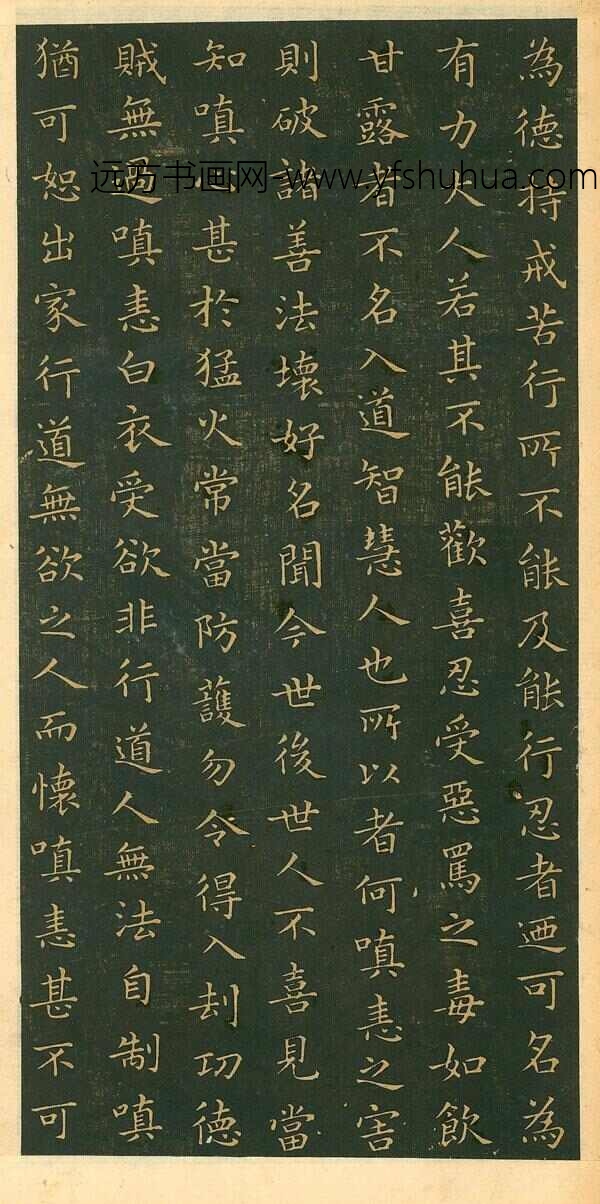 為德持戒苦行所不能及能行忍者迺可名為
有力大人若其不能歡喜忍受惡罵之毒如飲
甘露者不名入道智慧人也所以者何嗔恚之害
則破諸善法壞好名聞今世後世人不喜見當
知嗔心甚於猛火常當防護勿令得入刼功德
賊無過嗔恚白衣受欲非行道人無法自制嗔
猶可恕出家行道無欲之人而懷嗔恚甚不可
远方书画网-www.yfshuhua.com